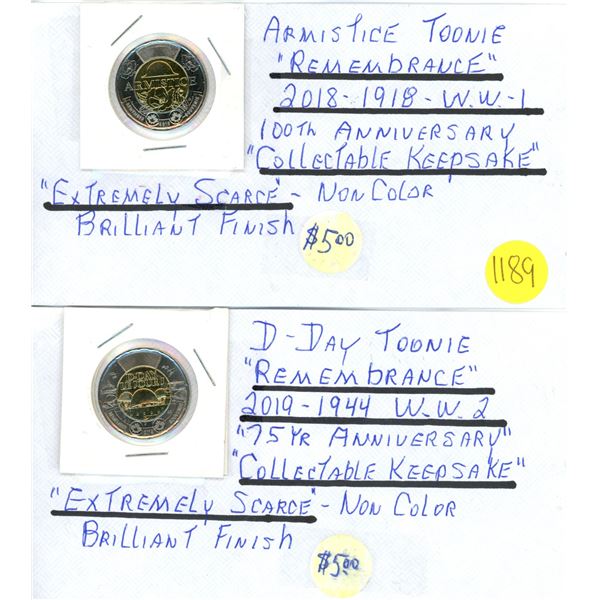 ARMISTICE TOONIE
"REMEMBRANCE"
2018-1918-W.W-1
100TH ANNIVERSARY
"COLLECTABLE KEEPSAKE"
"EXTREMELY SCARCE" - NON COLOR
BRILLIANT FINISH
$5.00
1189
ARMISTICE
D-DAY TOONIE
"REMEMBRANCE"
2019-1944 W.W.2
"75 YR ANNIVERSARY"
"COLLECTABLE KEEPSAKE"
"EXTREMELY SCARCE" - NON COLOR
BRILLIANT FINISH
$5.00
D-DAY
LE JOUR J